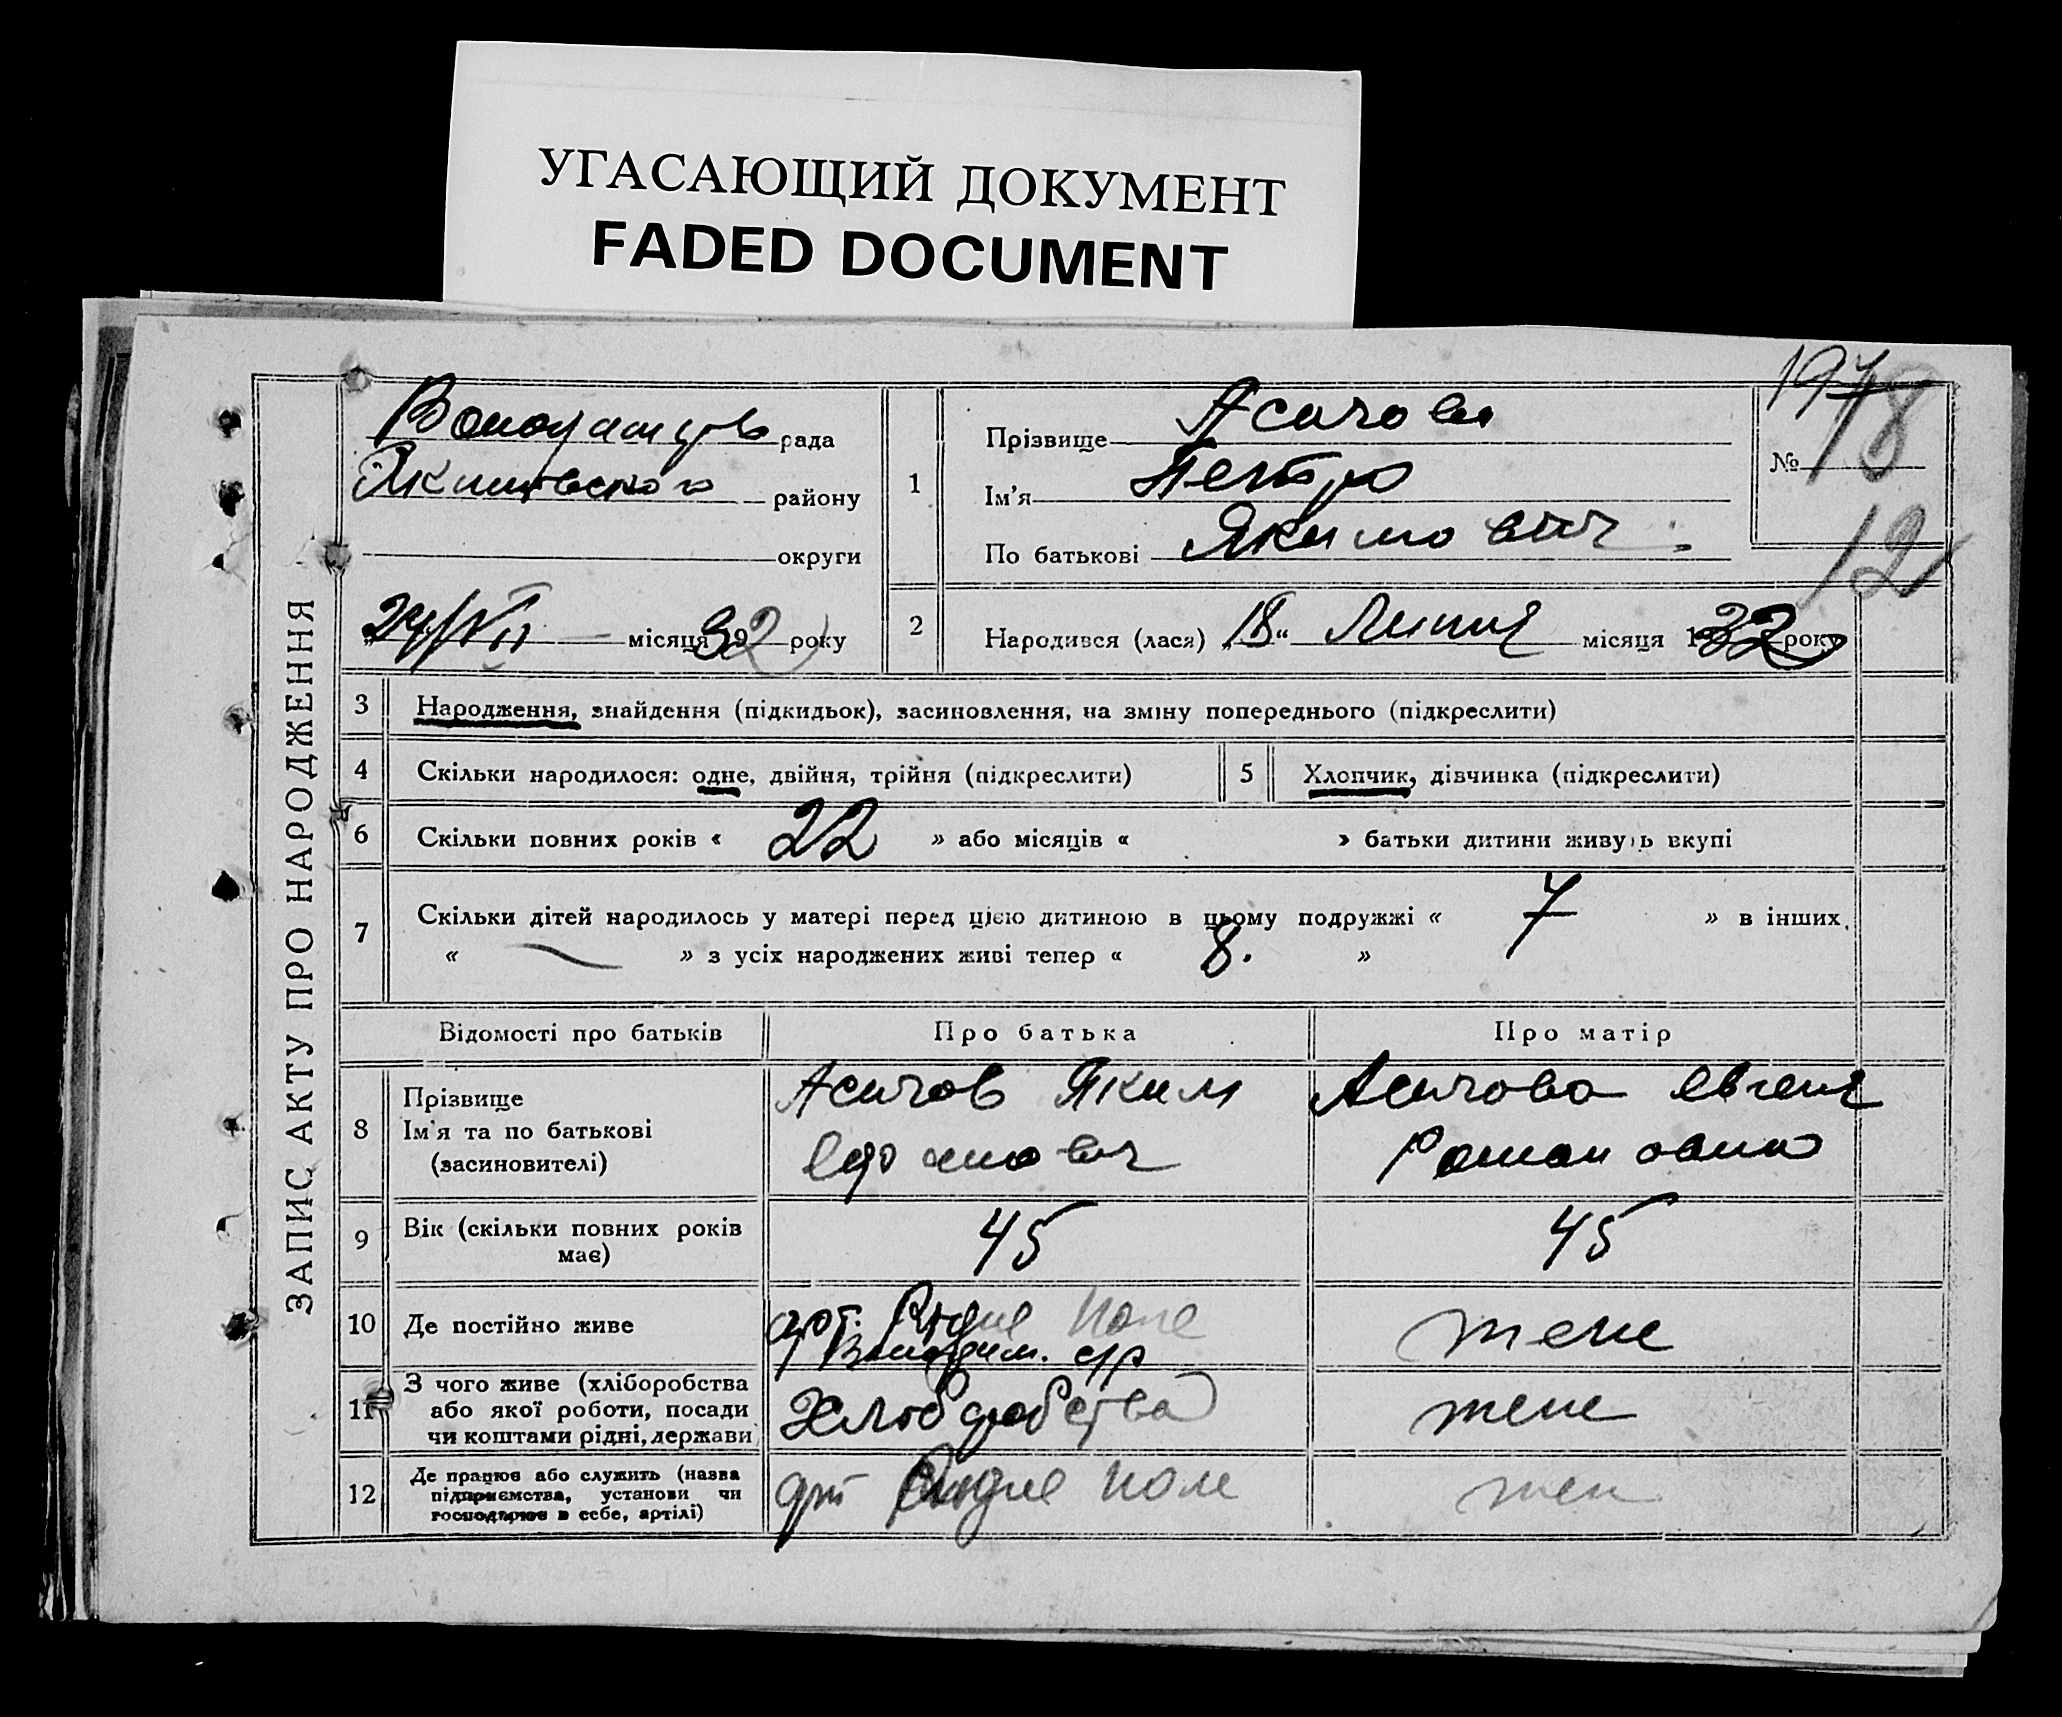 УГАСАЮЩИЙ ДОКУМЕНТ
FADED DOCUMENT
ЗАПИС АКТУ ПРО НАРОДЖЕННЯ
рада
району
округи
24/VII місяця 1932 року
1
Прізвище
Ім'я Петро
По батькові Якимович
№ 18
197
12
2
Народився (лася) „18“ Липня місяця 1932 року
3
Народження, знайдення (підкидьок), засиновлення, на зміну попереднього (підкреслити)
4
Скільки народилося: одне, двійня, трійня (підкреслити)
5
Хлопчик, дівчинка (підкреслити)
6
Скільки повних років « 22 » або місяців « » батьки дитини живуть вкупі
7
Скільки дітей народилось у матері перед цією дитиною в цьому подружжі « 7 » в інших
« — » з усіх народжених живі тепер « 8. »
Відомості про батьків
Про батька
Про матір
8
Прізвище
Ім'я та по батькові
(засиновителі)
Асичов Яким
Асичова Євгенія
Романовна
9
Вік (скільки повних років
має)
45
45
10
Де постійно живе
арт. Рідне Поле
с/р
тене
11
З чого живе (хліборобства
або якої роботи, посади
чи коштами рідні, держави
Хліборобства
тене
12
Де працює або служить (назва
підприємства, установи чи
господарює в себе, артілі)
арт Рідне Поле
тен